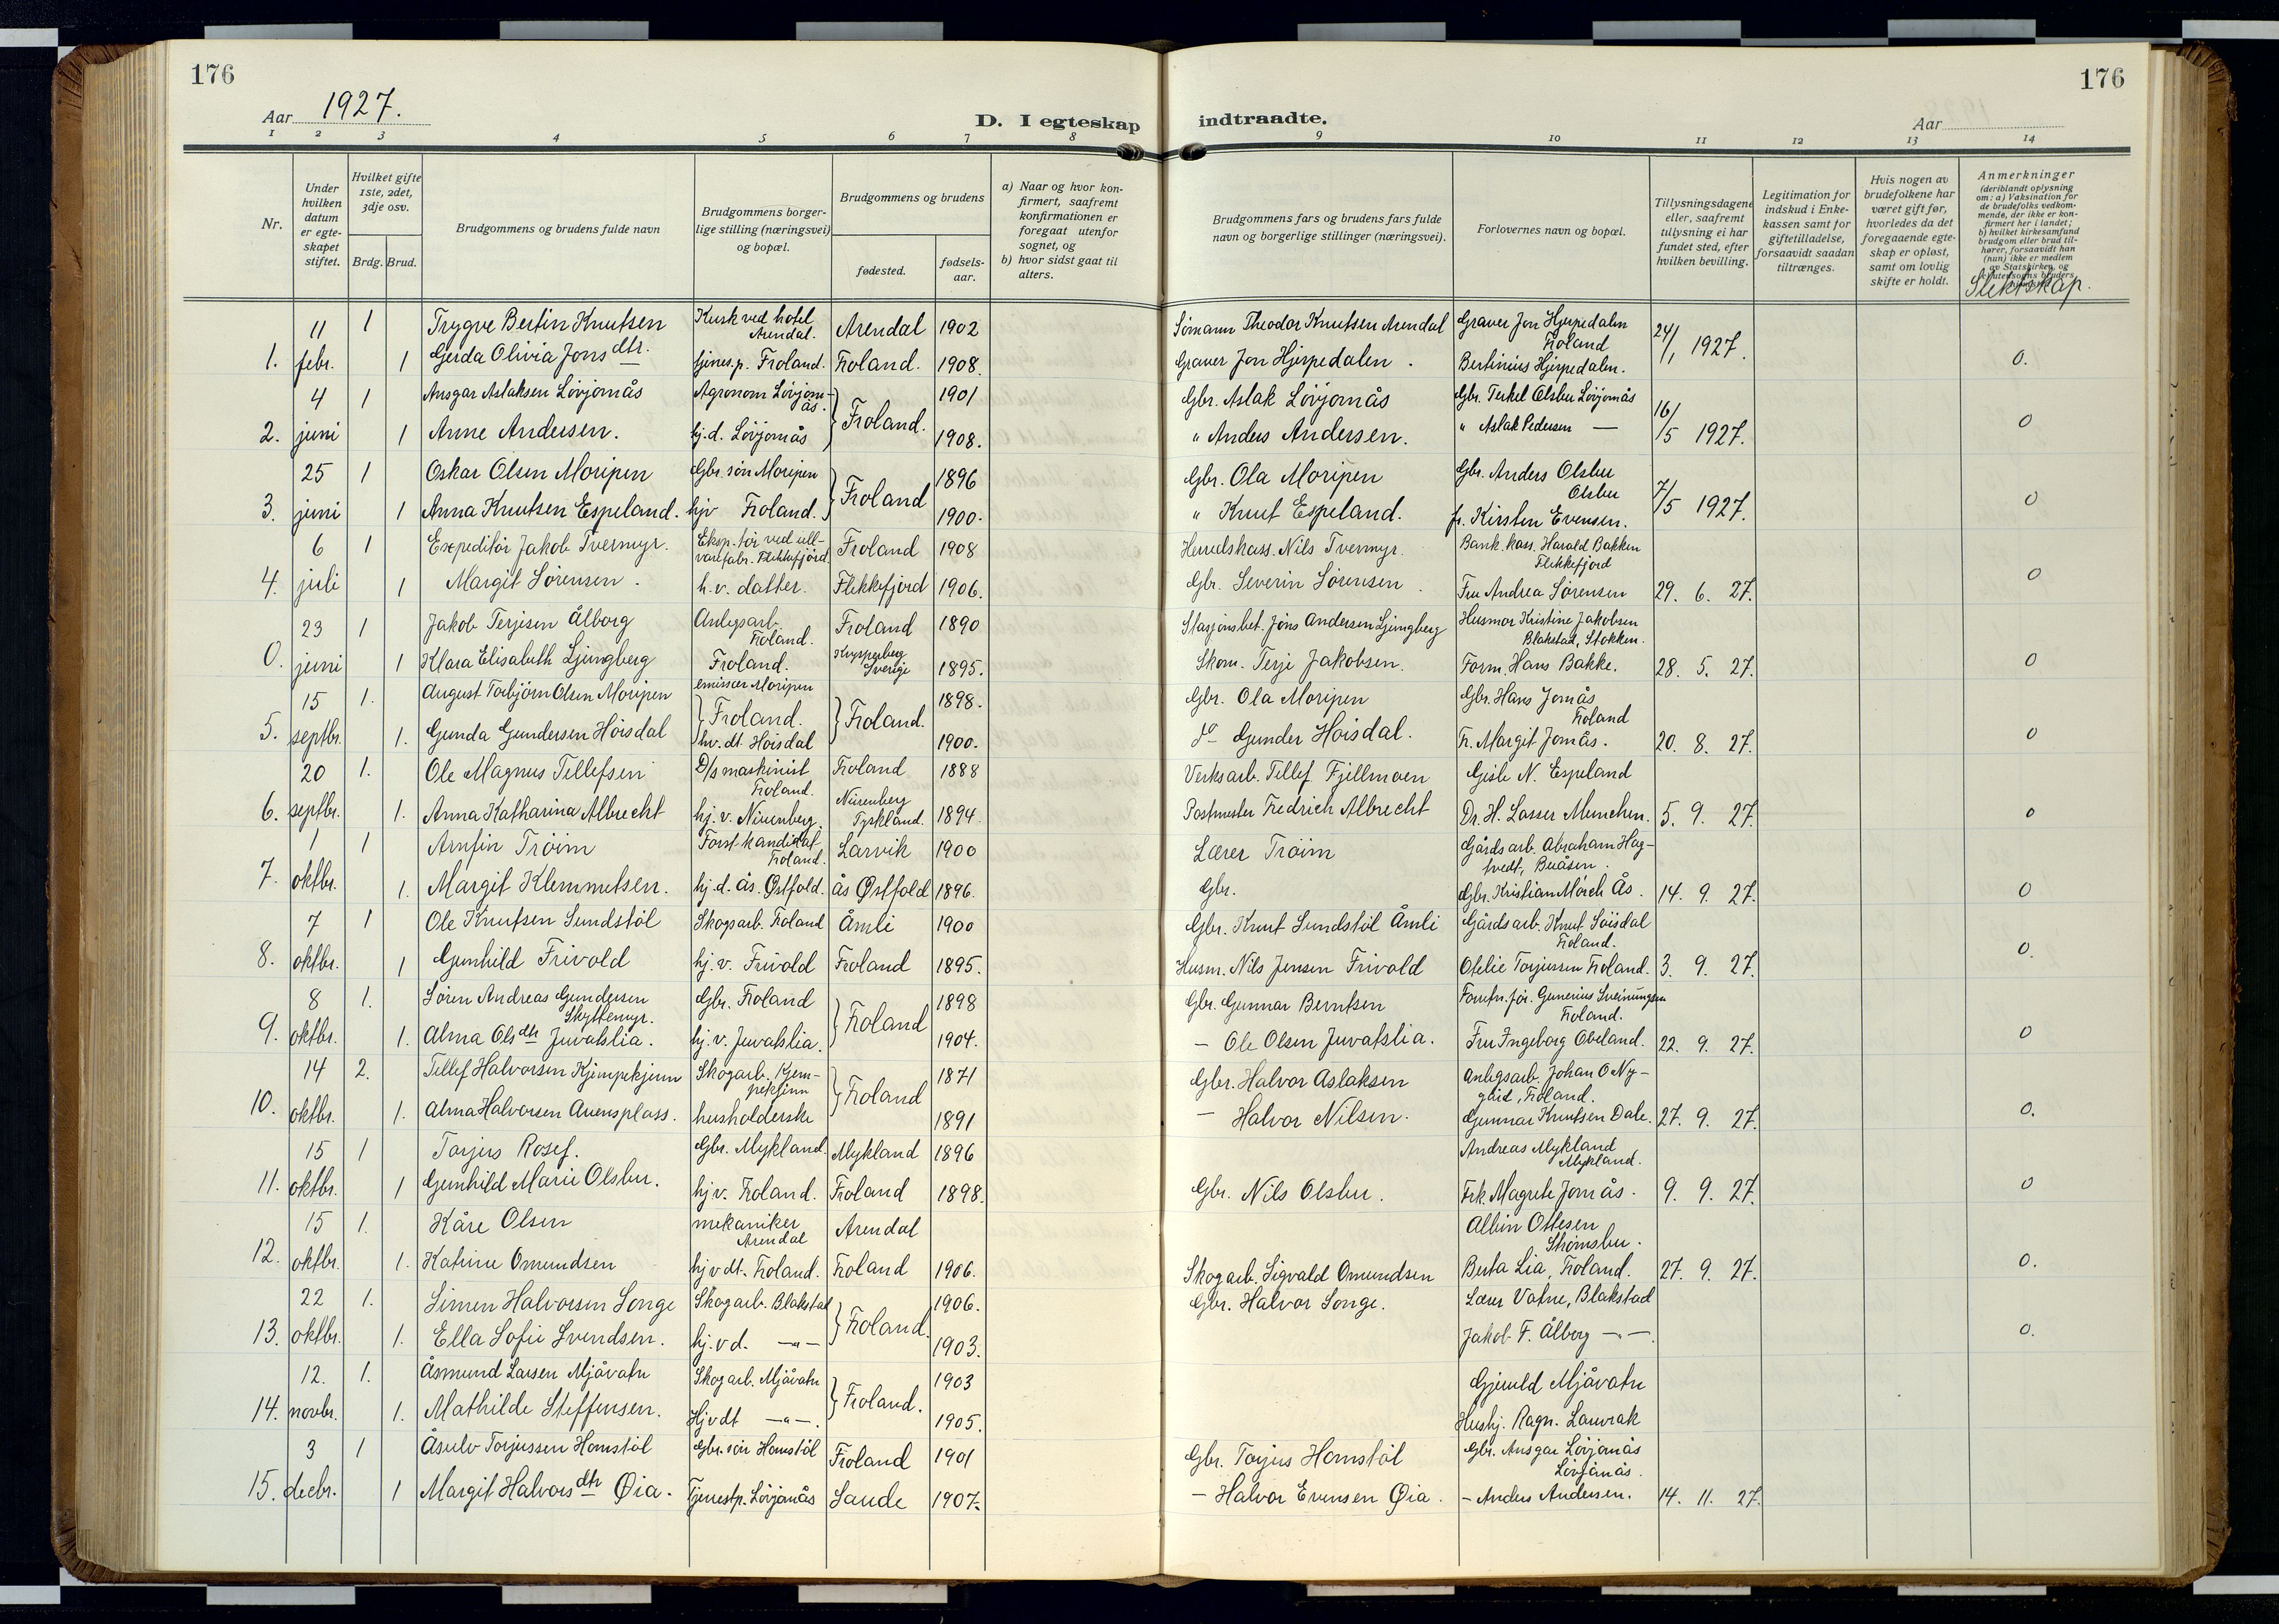 176
176
Aar 1927.
D. I egteskap indtraadte.
Aar
1 2 3 4 5 6 7 8 9 10 11 12 13 14
Nr.
Under hvilken datum er egteskapet stiftet.
Hvilket gifte 1ste, 2det, 3dje osv.
Brdg. Brud.
Brudgommens og brudens fulde navn
Brudgommens borgerlige stilling (næringsvei) og bopæl.
Brudgommens og brudens
fødested.
fødselsaar.
a) Naar og hvor konfirmert, saafremt konfirmationen er foregaat utenfor sognet, og
b) hvor sidst gaat til alters.
Brudgommens fars og brudens fars fulde navn og borgerlige stillinger (næringsvei).
Forlovernes navn og bopæl.
Tillysningsdagene eller, saafremt tillysning ei har fundet sted, efter hvilken bevilling.
Legitimation for indskud i Enkekassen samt for giftetilladelse, forsaavidt saadan tiltrænges.
Hvis nogen av brudefolkene har været gift før, hvorledes da det foregaaende egteskap er opløst, samt om lovlig skifte er holdt.
Anmerkninger
(deriblandt oplysning om: a) Vaksination for de brudefolks vedkommende, der ikke er konfirmert her i landet; b) hvilket kirkesamfund brudgom eller brud tilhører, forsaavidt han (hun) ikke er medlem av Statskirken, og
Slektskap.
11 1 Trygve Bertin Knutsen Kusk ved hotel Arendal. Arendal 1902 Sømann Theodor Knutsen Arendal Graver Jon Hjerpedalen Froland 24/1 1927.
1. febr. 1 Gerda Olivia Jonsdtr. tjenes.p. Froland. Froland. 1908. Graver Jon Hjerpedalen. Bertinius Hjerpedalen. 0.
4 1 Ansgar Aslaksen Lövjomås Agronom Lövjomås. Froland. 1901 Gbr. Aslak Lövjomås Gbr. Terkel Olsbu Lövjomås 16/5 1927.
2. juni 1 Anne Andersen. hj.d. Lövjomås 1908. " Anders Andersen. " Aslak Pedersen — 0
25 1 Oskar Olsen Moripen Gbr. sön Moripen Froland 1896 Gbr. Ola Moripen Gbr. Anders Olsbu Olsbu 7/5 1927.
3. juni 1 Anna Knutsen Espeland. hjv Froland. 1900. " Knut Espeland. fr. Kirsten Evensen. 0
6 1 Expeditör Jakob Tvermyr. Eksp.tör ved ullvarefabr. Flekkefjörd. Froland 1908 Herredskass. Nils Tvermyr. Bank.kass. Harald Bakken Flekkefjord
4. juli 1 Margit Sörensen. h.v. datter. Flekkefjord 1906. Gbr. Severin Sörensen Fru Andrea Sörensen 29. 6. 27. 0
23 1 Jakob Terjesen Ålborg Anlegsarb. Froland. Froland 1890 Stasjonsbet. Jöns Andersen Ljungberg Husmor Kristine Jakobsen Blakstad, Stokken.
0. juni 1 Klara Elisabeth Ljungberg Froland. Sverige 1895. Skom. Terje Jakobsen. Form. Hans Bakke. 28. 5. 27. 0
15 1. August Torbjörn Olsen Moripen emissær Moripen Froland. Froland. 1898. Gbr. Ola Moripen Gbr. Hans Jomås Froland
5. septbr. 1. Gunda Gundersen Höisdal hv. dt. Höisdal 1900. do Gunder Höisdal. Fr. Margit Jomås. 20. 8. 27. 0
20 1. Ole Magnus Tellefsen D/s maskinist Froland. Froland 1888 Verksarb. Tellef Fjellmoen Gisle N. Espeland
6. septbr. 1. Anna Katharina Albrecht hj.v. Nürenberg. Nürenberg Tyskland. 1894. Postmester Fredrich Albrecht Dr. H. Lasser Munchen. 5. 9. 27. 0
1 1 Arnfin Tröim Forst kandidat Froland. Larvik 1900 Lærer Tröim Gårdsarb. Abraham Hagtvedt, Buåsen.
7. oktbr. 1. Margit Klemmetsen. hj.d. ås. Østfold. ås Østfold 1896. Gbr. Gbr. Kristian Mörch Ås. 14. 9. 27. 0
7 1 Ole Knutsen Sundstöl Skogsarb. Froland Åmli 1900 Gbr. Knut Sundstöl Åmli Gårdsarb. Knut Söisdal Froland.
8. oktbr. 1 Gunhild Frivold hj.v. Frivold Froland 1895. Husm. Nils Jensen Frivold Otelie Torjussen Froland. 3. 9. 27. 0.
8 1. Sören Andreas Gundersen Skyttemyr. Gbr. Froland Froland 1898 Gbr. Gunnar Berntsen Forretn.för. Gunerius Sveinungsen Froland.
9. oktbr. 1. Alma Olsdtr Juvatslia. hj.v. Juvatslia. 1904. — Ole Olsen Juvatslia. Fru Ingeborg Obeland. 22. 9. 27. 0
14 2. Tellef Halvorsen Kjempekjenn Skogarb. Kjempekjenn Froland 1871 Gbr. Halvor Aslaksen Anlegsarb. Johan O Nygård, Froland.
10. oktbr. 1. Alma Halvorsen Auensplass. husholderske 1891 — Halvor Nilsen. Gunnar Knutsen Dale. 27. 9. 27. 0.
15 1 Torjus Rosef. Gbr. Mykland. Mykland 1896 Andreas Mykland Mykland.
11. oktbr. 1 Gunhild Marie Olsbu. hjv. Froland. Froland 1898. Gbr. Nils Olsbu. Frk. Magrete Jomås. 9. 9. 27. 0
15 1. Kåre Olsen mekaniker Arendal Arendal Albin Ottesen Strömsbu.
12. oktbr. 1. Katrine Omundsen hjvdt. Froland. Froland 1906. Skogarb. Sigvald Omundsen Berta Lia, Froland. 27. 9. 27. 0.
22 1. Simen Halvorsen Songe Skogarb. Blakstad Froland. 1906. Gbr. Halvor Songe. Lærer Vatne, Blakstad
13. oktbr. 1. Ella Sofie Svendsen. hj.vd. —"— 1903. Jakob T. Ålborg —"—. 0.
12. 1. Åsmund Larsen Mjåvatn Skogarb. Mjåvatn Froland. 1903 Gjeruld Mjåvatn
14. novbr. 1. Mathilde Steffensen. Hjvdt —"—. 1905. Hushj. Ragn. Lauvrak
3 1 Åsulv Torjussen Homstöl Gbr. sön Homstöl Froland 1901 Gbr. Torjus Homstöl Gbr. Ansgar Lövjomås Lövjomås.
15. decbr. 1 Margit Halvorsdtr Øia. Tjenestp. Lövjomås Sande 1907. — Halvor Evensen Øia. — Anders Andersen. 14. 11. 27.